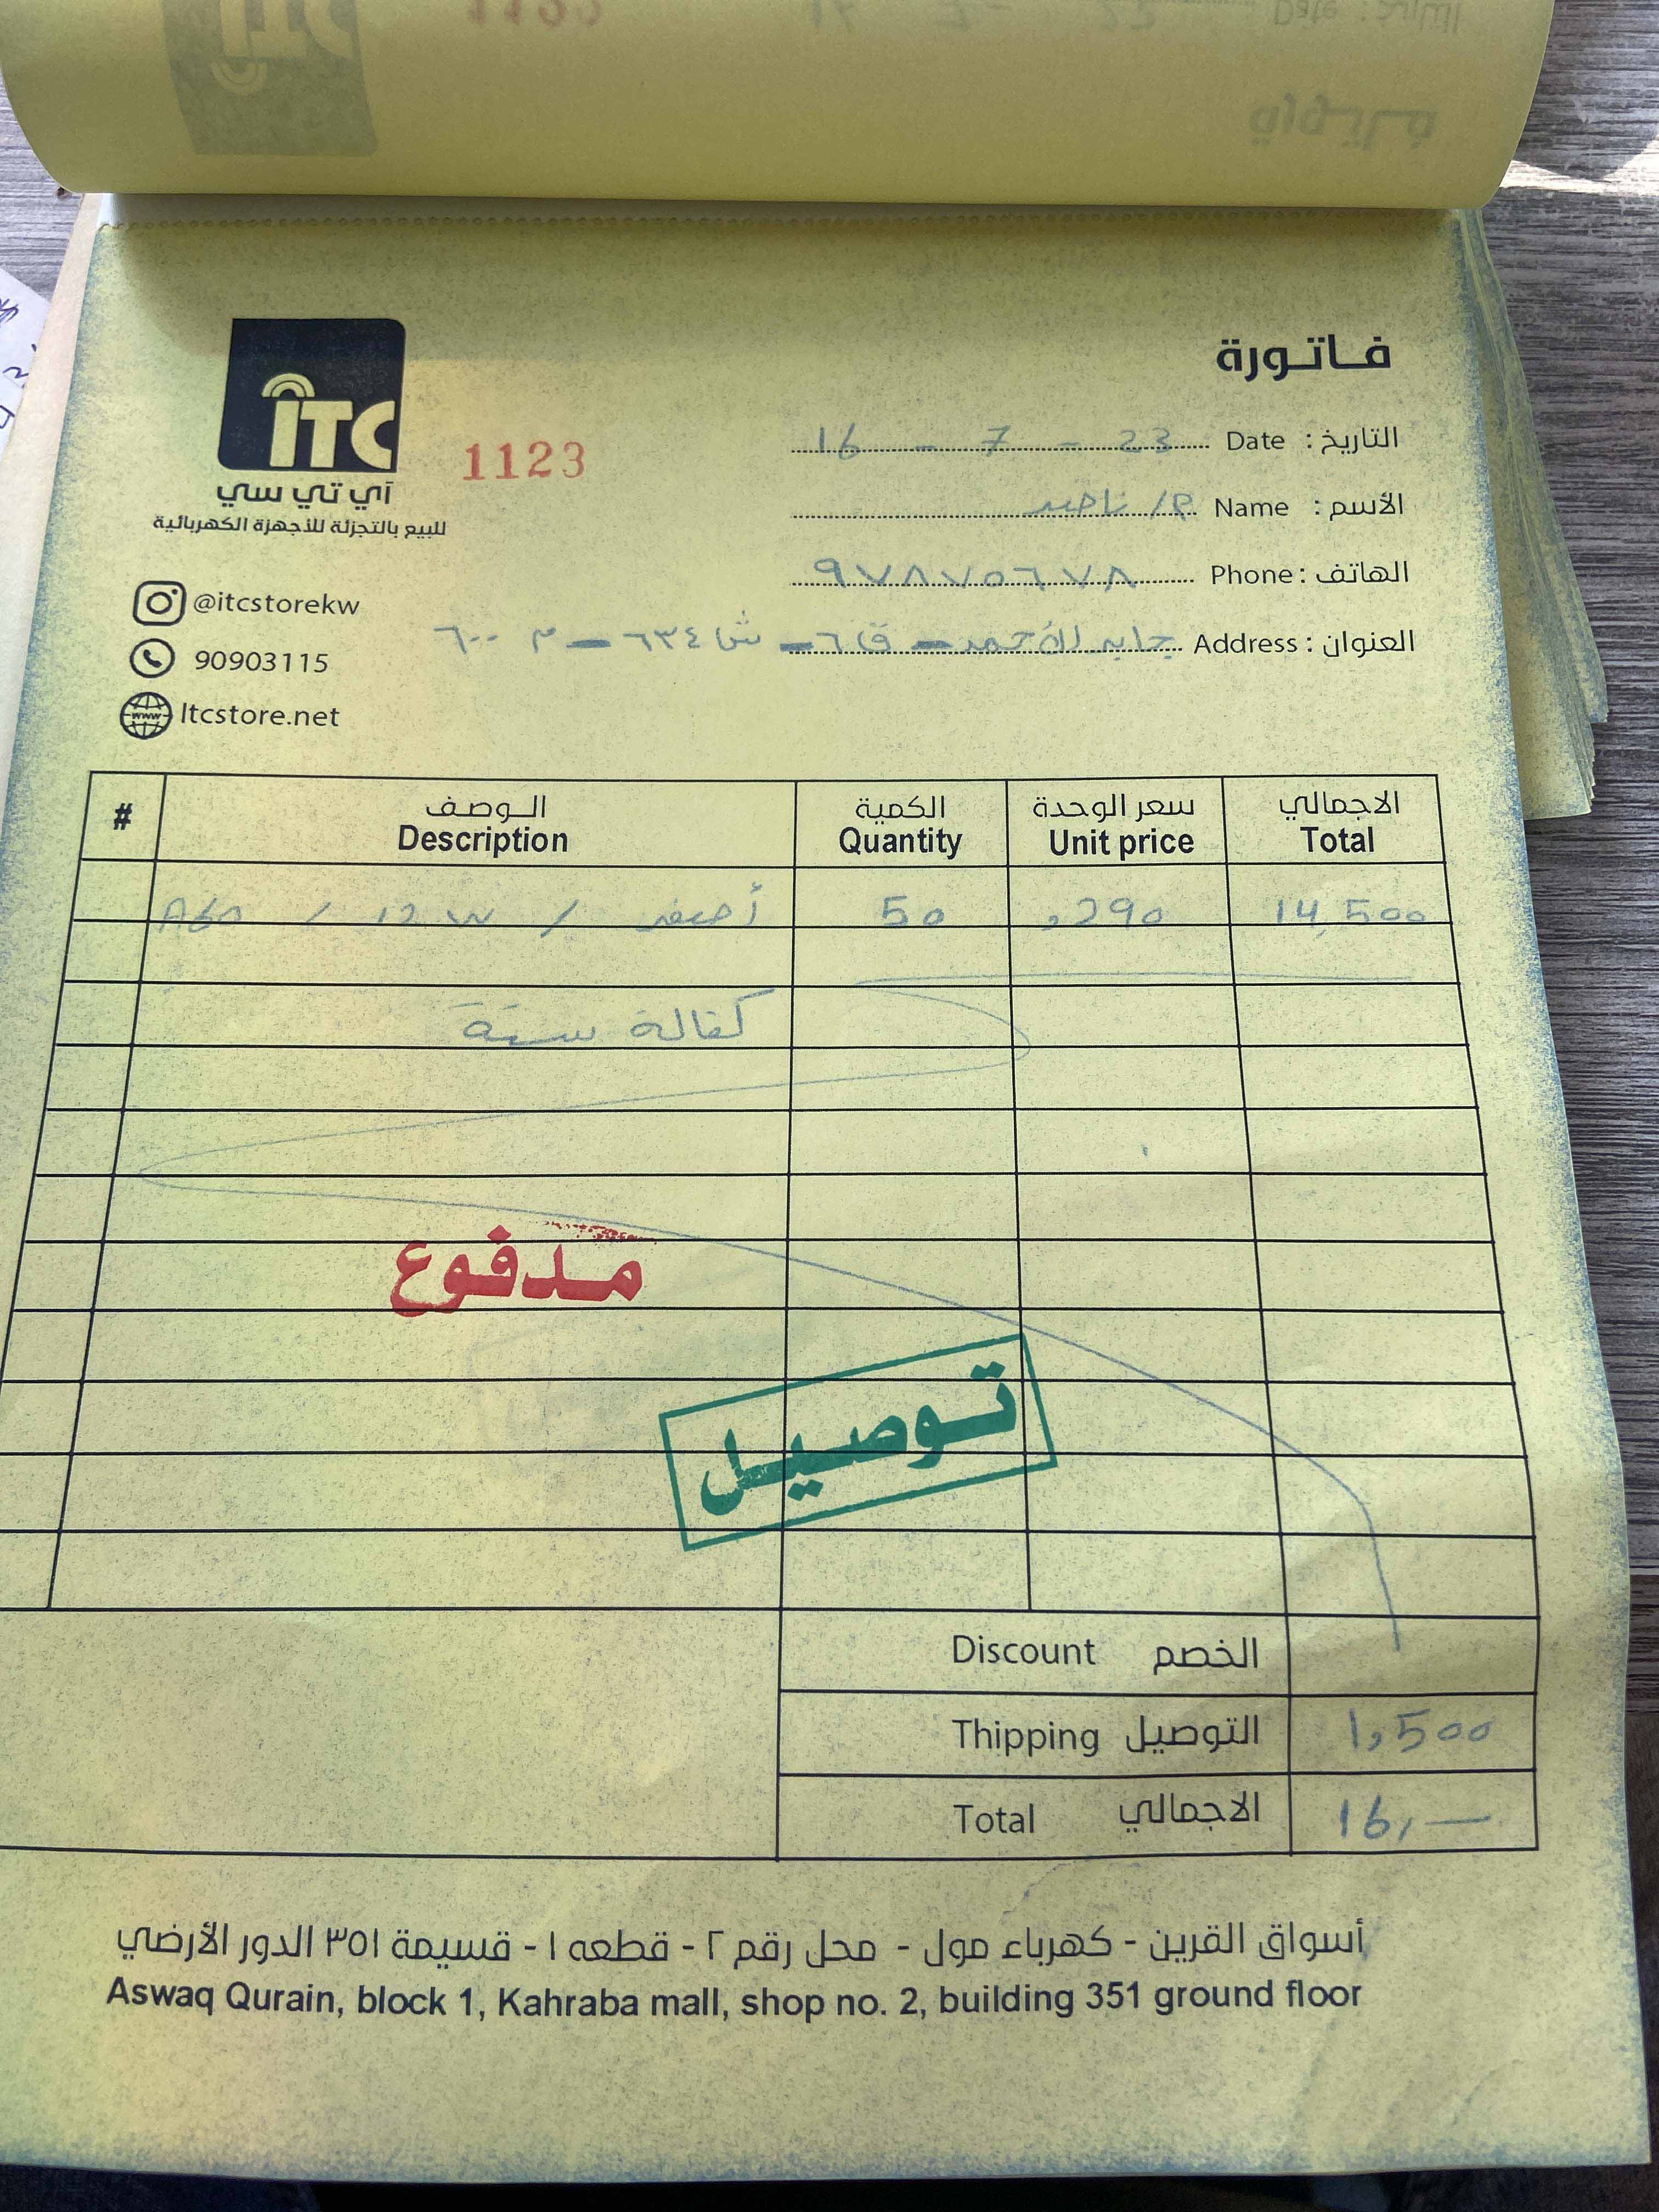 فاتورة
ITC
آي تي سي
للبيع بالتجزئة للأجهزة الكهربائية
1123
التاريخ : Date 16 - 7 - 23
الأسم : Name م/ ناصر
الهاتف : Phone ٩٧٨٧٥٦٧٨
العنوان : Address جابر الأحمد - ق٦ - ش٦٣٤ - م ٦٠٠
@itcstorekw
90903115
Itcstore.net
# الوصف الكمية سعر الوحدة الاجمالي
Description Quantity Unit price Total
A60 / 12W / أصفر 50 ,290 14,500
كفالة سنة
مدفوع
توصيل
Discount الخصم
Thipping التوصيل 1,500
Total الاجمالي 16,—
أسواق القرين - كهرباء مول - محل رقم ٢ - قطعه ١ - قسيمة ٣٥١ الدور الأرضي
Aswaq Qurain, block 1, Kahraba mall, shop no. 2, building 351 ground floor